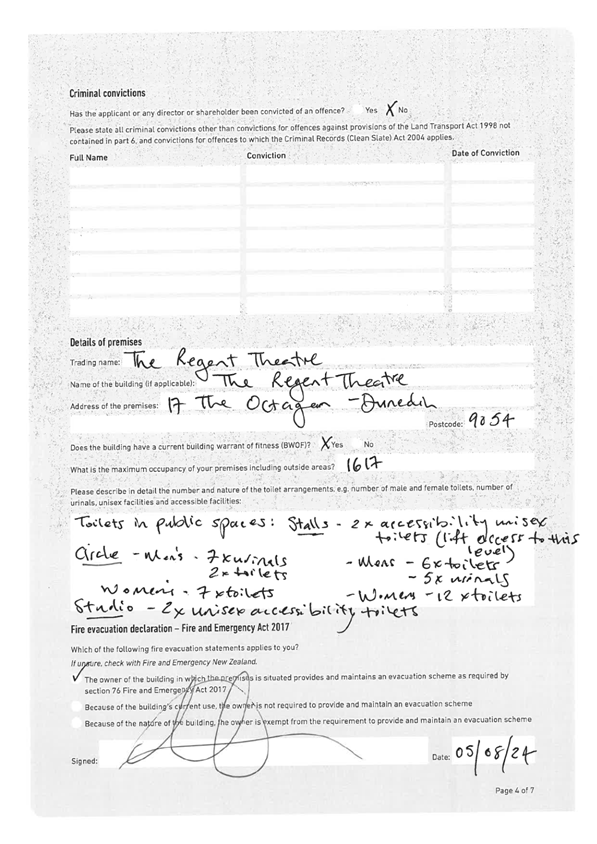 Criminal convictions
Has the applicant or any director or shareholder been convicted of an offence? Yes X No
Please state all criminal convictions other than convictions for offences against provisions of the Land Transport Act 1998 not
contained in part 6, and convictions for offences to which the Criminal Records (Clean Slate) Act 2004 applies.
Full Name Conviction Date of Conviction
Details of premises
Trading name: The Regent Theatre
Name of the building (if applicable): The Regent Theatre
Address of the premises: 17 The Octagon - Dunedin
Postcode: 9054
Does the building have a current building warrant of fitness (BWOF)? X Yes No
What is the maximum occupancy of your premises including outside areas? 1617
Please describe in detail the number and nature of the toilet arrangements, e.g. number of male and female toilets, number of
urinals, unisex facilities and accessible facilities:
Toilets in public spaces: Stalls - 2x accessibility unisex
toilets (lift access to this
level)
Circle - Men's - 7x urinals - Mens - 6x toilets
2x toilets - 5x urinals
Women's - 7x toilets - Womens - 12x toilets
Studio - 2x unisex accessibility toilets
Fire evacuation declaration – Fire and Emergency Act 2017
Which of the following fire evacuation statements applies to you?
If unsure, check with Fire and Emergency New Zealand.
✓ The owner of the building in which the premises is situated provides and maintains an evacuation scheme as required by
section 76 Fire and Emergency Act 2017
Because of the building's current use, the owner is not required to provide and maintain an evacuation scheme
Because of the nature of the building, the owner is exempt from the requirement to provide and maintain an evacuation scheme
Signed: Date: 05/08/24
Page 4 of 7